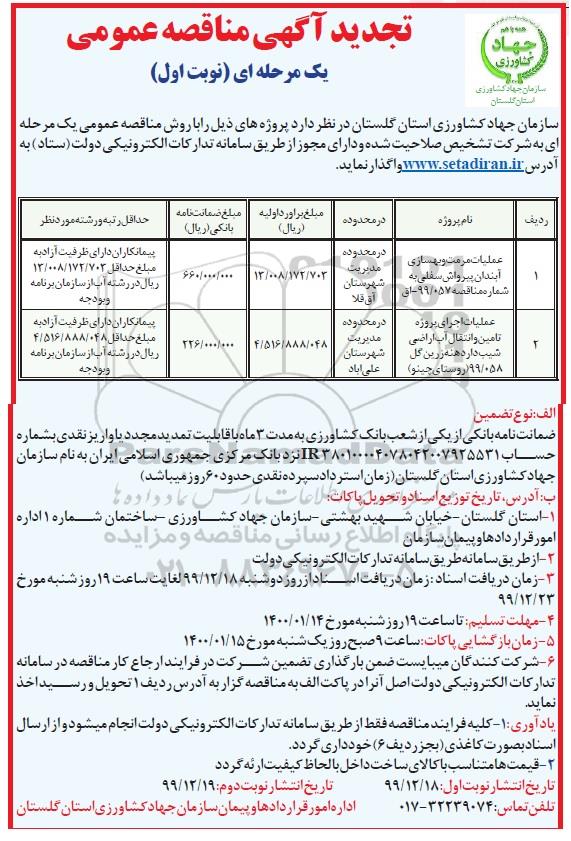 تجدید آگهی مناقصه عمومی
یک مرحله ای (نوبت اول)
همه با هم
جهاد
کشاورزی
سازمان جهاد کشاورزی
استان گلستان
سازمان جهاد کشاورزی استان گلستان در نظر دارد پروژه های ذیل را با روش مناقصه عمومی یک مرحله
ای به شرکت تشخیص صلاحیت شده و دارای مجوز از طریق سامانه تدارکات الکترونیکی دولت (ستاد) به
آدرس www.setadiran.ir واگذار نماید.
ردیف
نام پروژه
در محدوده
مبلغ براورد اولیه (ریال)
مبلغ ضمانت نامه بانکی (ریال)
حداقل رتبه و رشته مورد نظر
۱
عملیات مرمت و بهسازی
آبندان پیرواش سفلی به
شماره مناقصه ۹۹/۰۵۷-اق
در محدوده
مدیریت
شهرستان
آق قلا
۱۳/۰۰۸/۱۷۲/۷۰۳
۶۶۰/۰۰۰/۰۰۰
پیمانکاران دارای ظرفیت آزاد به
مبلغ حداقل ۱۳/۰۰۸/۱۷۲/۷۰۳
ریال در رشته آب از سازمان برنامه
و بودجه
۲
عملیات اجرای پروژه
تامین و انتقال آب اراضی
شیب دار دهنه زرین گل
۹۹/۰۵۸ (روستای چینو)
در محدوده
مدیریت
شهرستان
علی اباد
۴/۵۱۶/۸۸۸/۰۴۸
۲۲۶/۰۰۰/۰۰۰
پیمانکاران دارای ظرفیت آزاد به
مبلغ حداقل ۴/۵۱۶/۸۸۸/۰۴۸
ریال در رشته آب از سازمان برنامه
و بودجه
الف: نوع تضمین
ضمانت نامه بانکی از یکی از شعب بانک کشاورزی به مدت ۳ ماه با قابلیت تمدید مجدد یا واریز نقدی بشماره
حساب IR۳۸۰۱۰۰۰۰۴۰۷۸۰۴۲۰۰۷۹۲۵۵۳۱ نزد بانک مرکزی جمهوری اسلامی ایران به نام سازمان
جهاد کشاورزی استان گلستان (زمان استرداد سپرده نقدی حدود ۶۰ روز میباشد)
ب: آدرس، تاریخ توزیع اسناد و تحویل پاکات:
۱-استان گلستان -خیابان شهید بهشتی -سازمان جهاد کشاورزی -ساختمان شماره ۱ اداره
امور قراردادها و پیمان سازمان
۲-از طریق سامانه طریق سامانه تدارکات الکترونیکی دولت
۳-زمان دریافت اسناد: زمان دریافت اسناد از روز دوشنبه ۹۹/۱۲/۱۸ لغایت ساعت ۱۹ روز شنبه مورخ
۹۹/۱۲/۲۳
۴-مهلت تسلیم: تا ساعت ۱۹ روز شنبه مورخ ۱۴۰۰/۰۱/۱۴
۵-زمان بازگشایی پاکات: ساعت ۹ صبح روز یک شنبه مورخ ۱۴۰۰/۰۱/۱۵
۶-شرکت کنندگان میبایست ضمن بارگذاری تضمین شرکت در فرایند ارجاع کار مناقصه در سامانه
تدارکات الکترونیکی دولت اصل آنرا در پاکت الف به مناقصه گزار به آدرس ردیف ۱ تحویل و رسید اخذ
نماید.
یادآوری: ۱-کلیه فرایند مناقصه فقط از طریق سامانه تدارکات الکترونیکی دولت انجام میشود و از ارسال
اسناد بصورت کاغذی (بجز ردیف ۶) خودداری گردد.
۲-قیمت ها متناسب با کالای ساخت داخل با لحاظ کیفیت ارئه گردد
تاریخ انتشار نوبت اول: ۹۹/۱۲/۱۸ تاریخ انتشار نوبت دوم: ۹۹/۱۲/۱۹
تلفن تماس: ۳۲۲۳۹۰۷۴-۰۱۷ اداره امور قراردادها و پیمان سازمان جهاد کشاورزی استان گلستان
پایگاه اطلاع رسانی مناقصه و مزایده